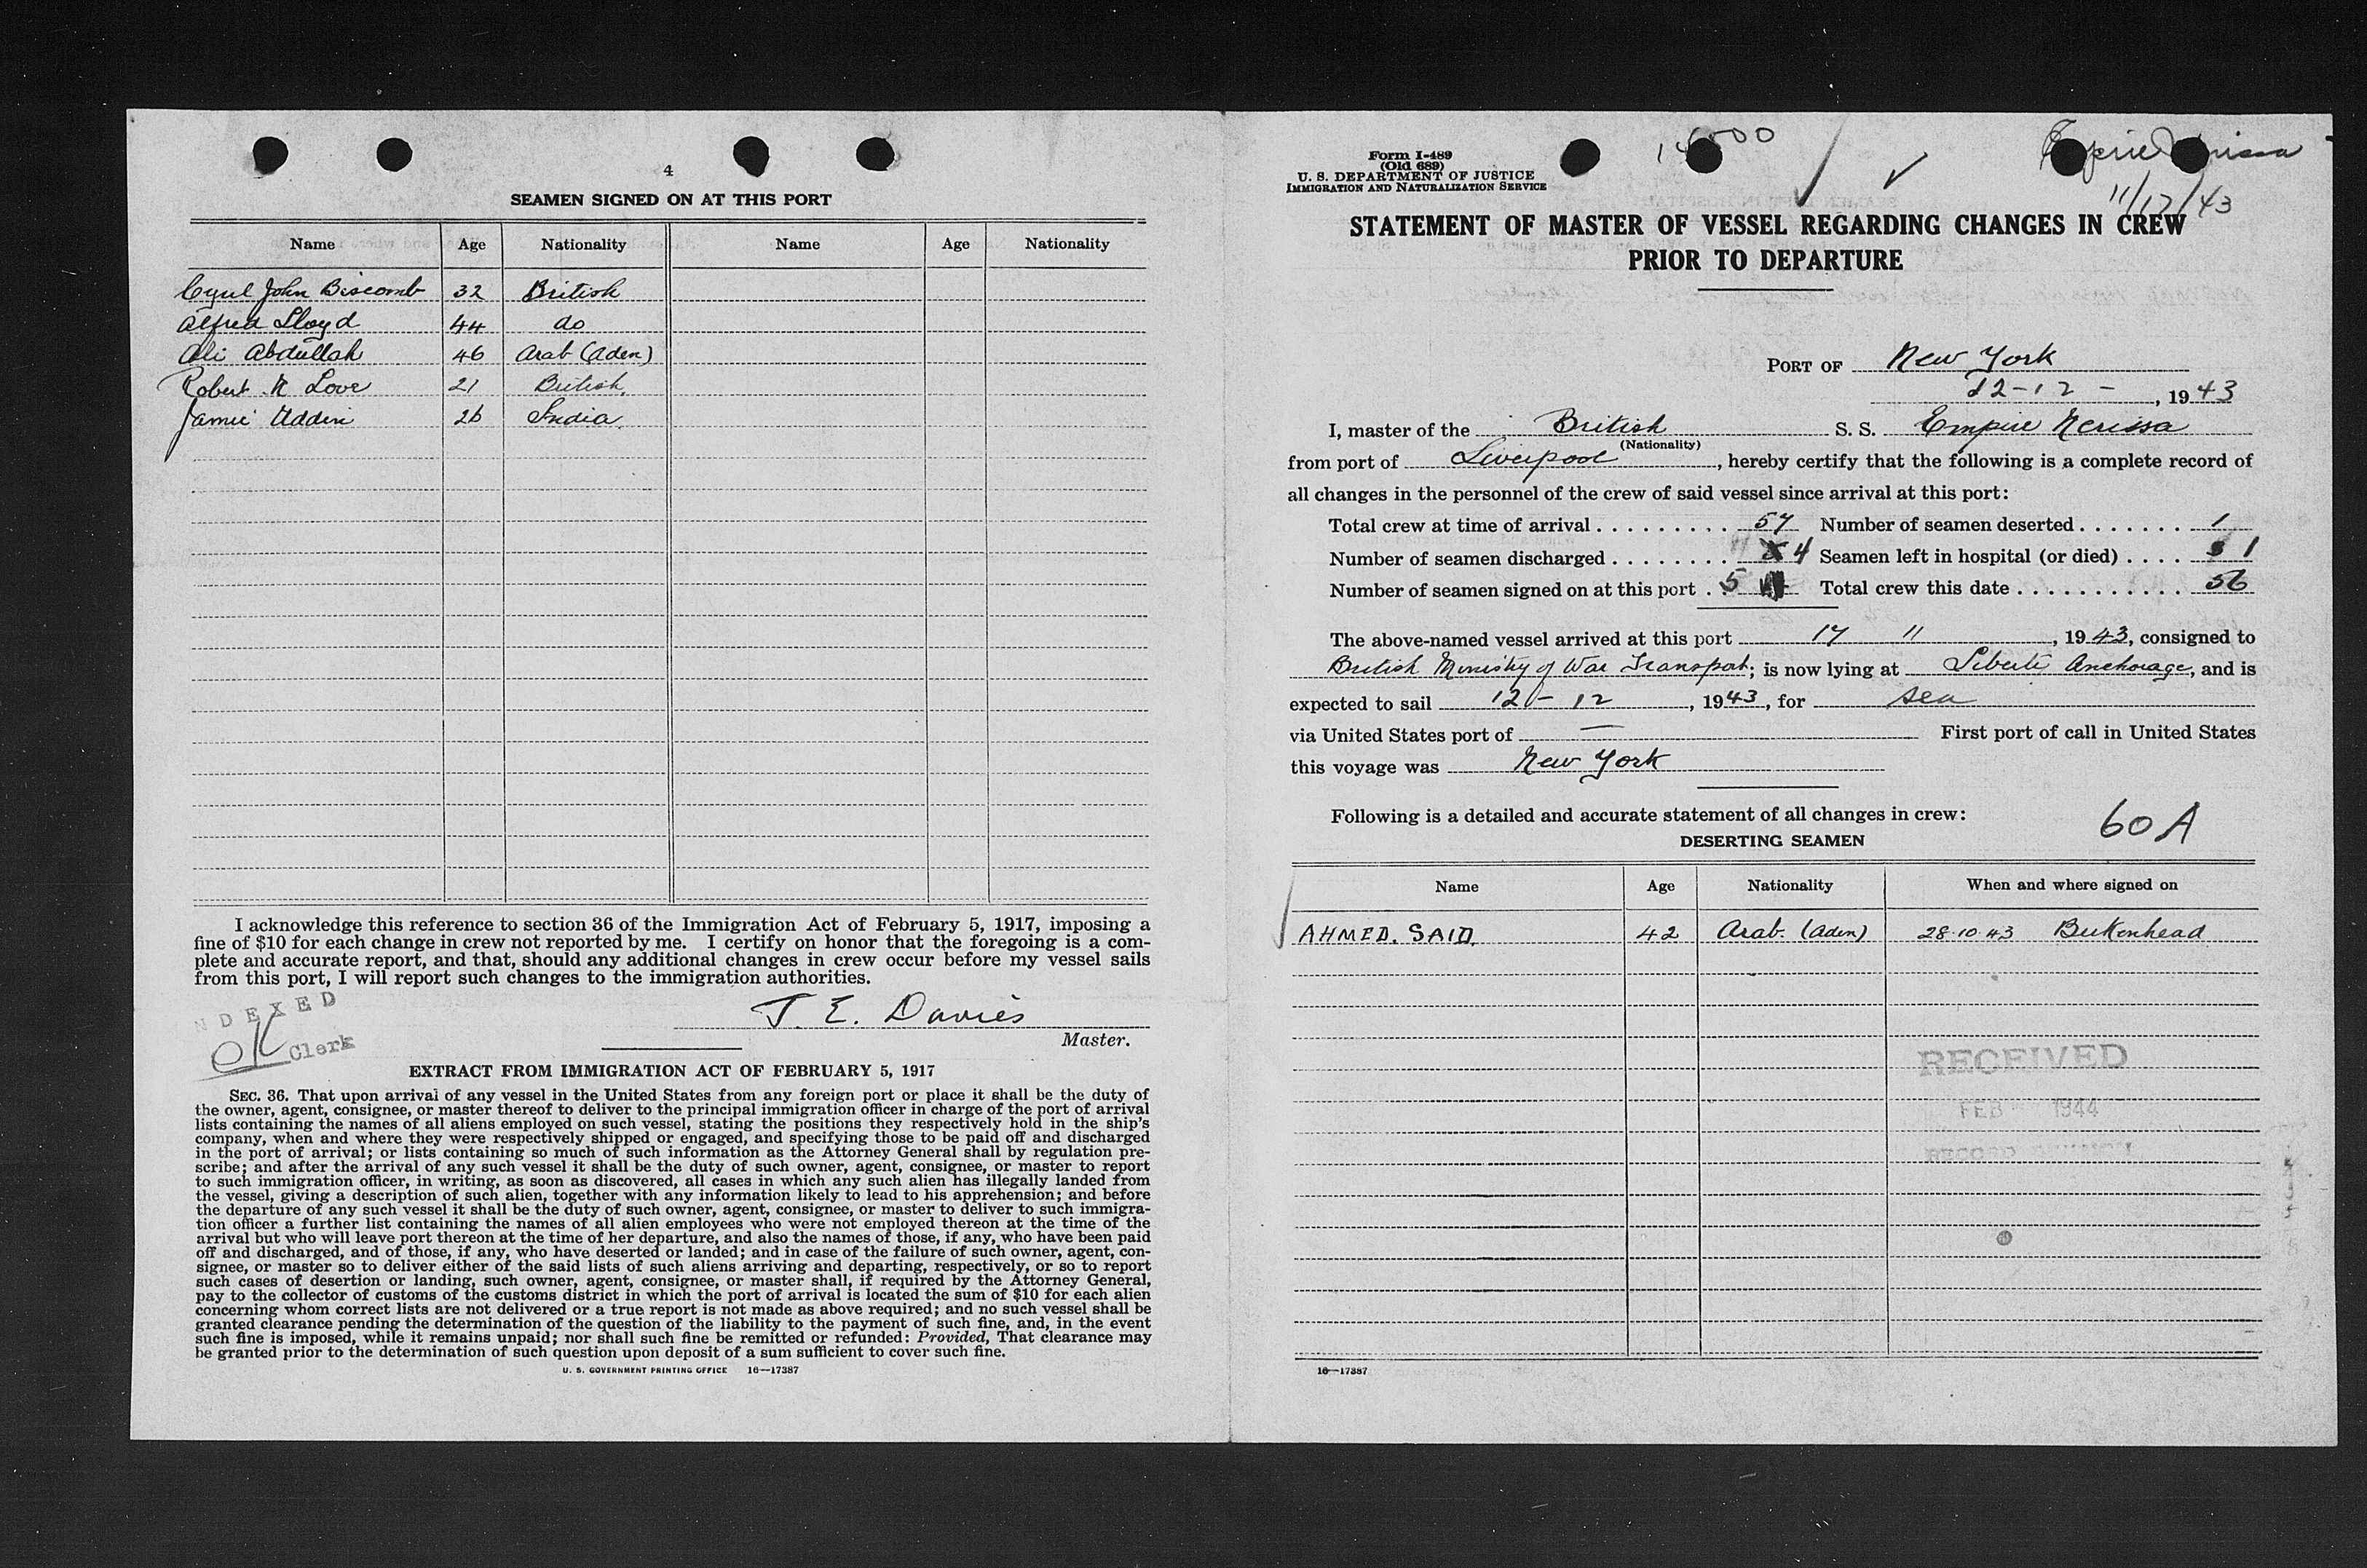 4
SEAMEN SIGNED ON AT THIS PORT
Name Age Nationality Name Age Nationality
Cyril John Biscomb 32 British
Alfred Lloyd 44 do
Ali Abdullah 46 Arab (Aden)
Robert N Love 21 British.
Jamie Uddin 26 India.
I acknowledge this reference to section 36 of the Immigration Act of February 5, 1917, imposing a
fine of $10 for each change in crew not reported by me. I certify on honor that the foregoing is a com-
plete and accurate report, and that, should any additional changes in crew occur before my vessel sails
from this port, I will report such changes to the immigration authorities.
NDEXED
OK Clerk
J. E. Davies
Master.
EXTRACT FROM IMMIGRATION ACT OF FEBRUARY 5, 1917
SEC. 36. That upon arrival of any vessel in the United States from any foreign port or place it shall be the duty of
the owner, agent, consignee, or master thereof to deliver to the principal immigration officer in charge of the port of arrival
lists containing the names of all aliens employed on such vessel, stating the positions they respectively hold in the ship's
company, when and where they were respectively shipped or engaged, and specifying those to be paid off and discharged
in the port of arrival; or lists containing so much of such information as the Attorney General shall by regulation pre-
scribe; and after the arrival of any such vessel it shall be the duty of such owner, agent, consignee, or master to report
to such immigration officer, in writing, as soon as discovered, all cases in which any such alien has illegally landed from
the vessel, giving a description of such alien, together with any information likely to lead to his apprehension; and before
the departure of any such vessel it shall be the duty of such owner, agent, consignee, or master to deliver to such immigra-
tion officer a further list containing the names of all alien employees who were not employed thereon at the time of the
arrival but who will leave port thereon at the time of her departure, and also the names of those, if any, who have been paid
off and discharged, and of those, if any, who have deserted or landed; and in case of the failure of such owner, agent, con-
signee, or master so to deliver either of the said lists of such aliens arriving and departing, respectively, or so to report
such cases of desertion or landing, such owner, agent, consignee, or master shall, if required by the Attorney General,
pay to the collector of customs of the customs district in which the port of arrival is located the sum of $10 for each alien
concerning whom correct lists are not delivered or a true report is not made as above required; and no such vessel shall be
granted clearance pending the determination of the question of the liability to the payment of such fine, and, in the event
such fine is imposed, while it remains unpaid; nor shall such fine be remitted or refunded: Provided, That clearance may
be granted prior to the determination of such question upon deposit of a sum sufficient to cover such fine.
U. S. GOVERNMENT PRINTING OFFICE 16—17387
Form I-489
(Old 689)
U. S. DEPARTMENT OF JUSTICE
IMMIGRATION AND NATURALIZATION SERVICE
11/17/43
STATEMENT OF MASTER OF VESSEL REGARDING CHANGES IN CREW
PRIOR TO DEPARTURE
PORT OF New York
12-12-, 1943
I, master of the British S. S. Empire Nerissa
(Nationality)
from port of Liverpool, hereby certify that the following is a complete record of
all changes in the personnel of the crew of said vessel since arrival at this port:
Total crew at time of arrival . . . . . . . . . 57 Number of seamen deserted . . . . . . . 1
Number of seamen discharged . . . . . . . . 4 Seamen left in hospital (or died) . . . . 1
Number of seamen signed on at this port . . 5 Total crew this date . . . . . . . . . . . . 56
The above-named vessel arrived at this port 17 11, 1943, consigned to
British Ministry of War Transport; is now lying at Liberty Anchorage, and is
expected to sail 12 - 12, 1943, for sea
via United States port of — First port of call in United States
this voyage was New York
Following is a detailed and accurate statement of all changes in crew:
60A
DESERTING SEAMEN
Name Age Nationality When and where signed on
AHMED. SAID. 42 Arab. (Aden) 28.10.43 Birkenhead
RECEIVED
FEB 1944
RECORD
16—17387